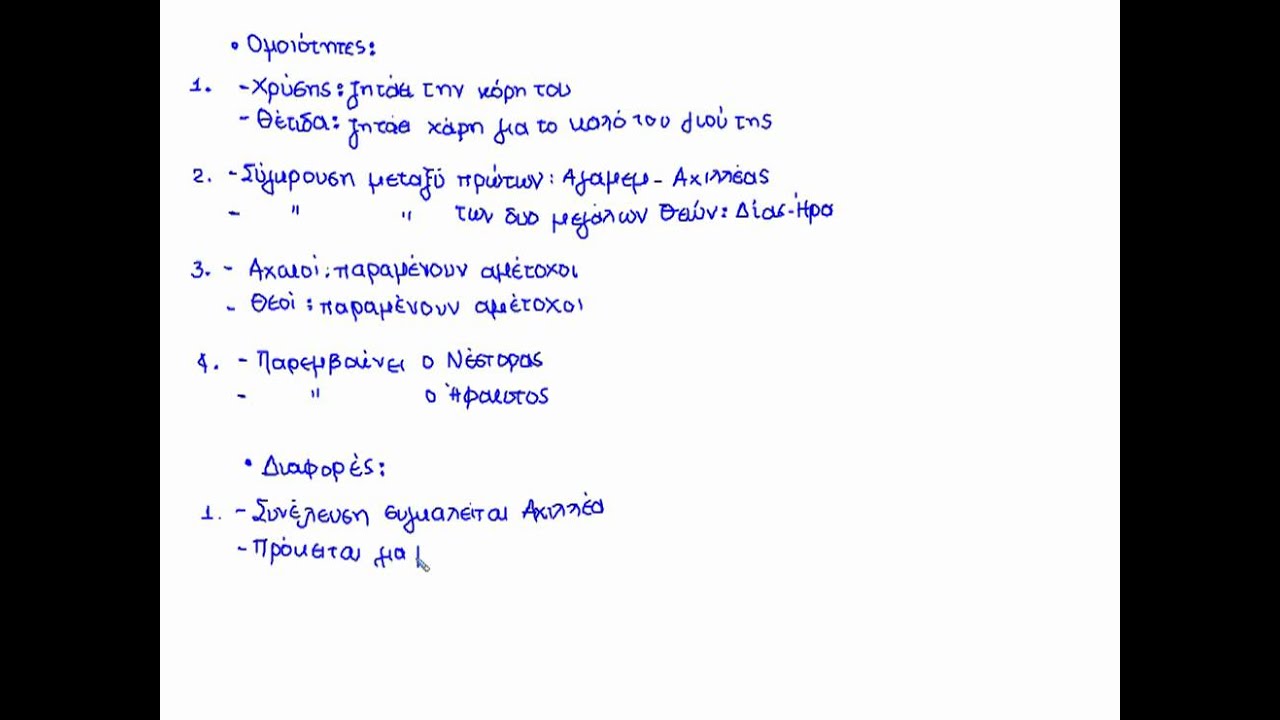 • Ομοιότητες:
1. - Χρύσης: ζητάει την κόρη του
- Θέτιδα: ζητάει χάρη για το καλό του γιού της
2. - Σύγκρουση μεταξύ πρώτων: Αγαμεμ - Αχιλλέας
- " " των δυο μεγάλων θεών: Δίας-Ήρα
3. - Αχαιοί: παραμένουν αμέτοχοι
- Θεοί: παραμένουν αμέτοχοι
4. - Παρεμβαίνει ο Νέστορας
- " ο Ήφαιστος
• Διαφορές:
1. - Συνέλευση συγκαλείται Αχιλλέα
- Πρόκειται για